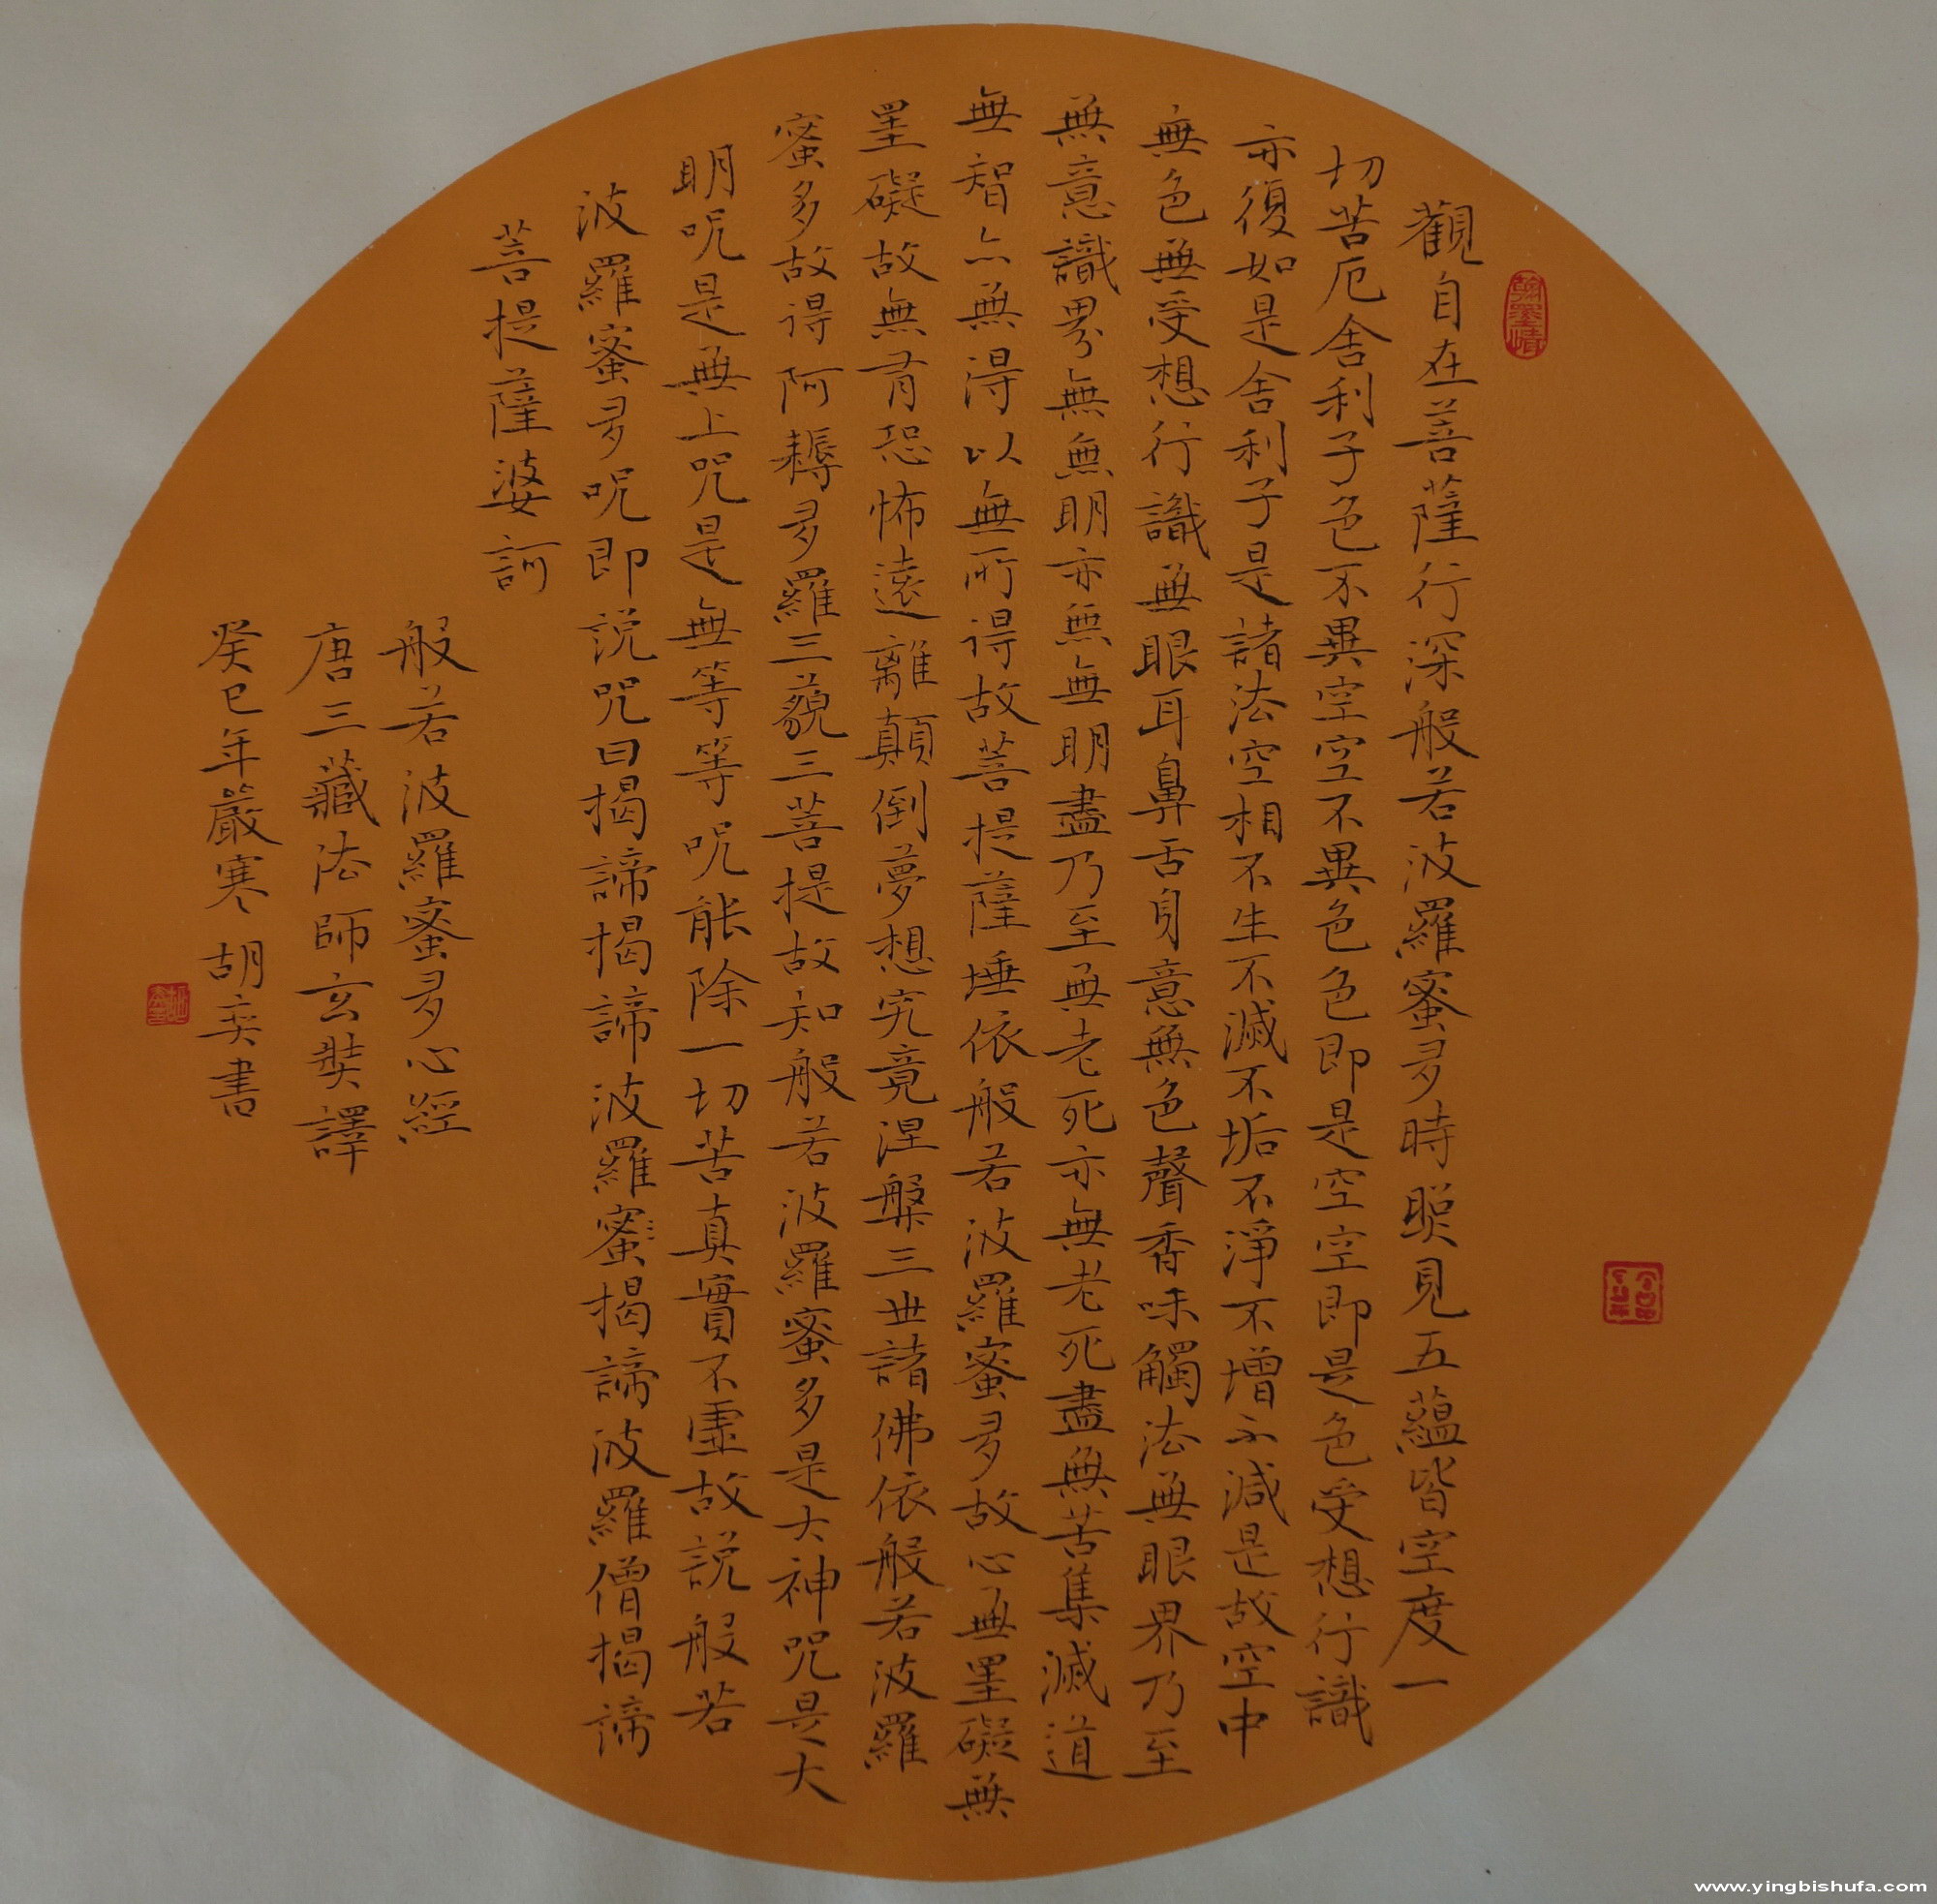 觀自在菩薩行深般若波羅蜜多時照見五蘊皆空度一
切苦厄舍利子色不異空空不異色色即是空空即是色受想行識
亦復如是舍利子是諸法空相不生不滅不垢不淨不增不減是故空中
無色無受想行識無眼耳鼻舌身意無色聲香味觸法無眼界乃至
無意識界無無明亦無無明盡乃至無老死亦無老死盡無苦集滅道
無智亦無得以無所得故菩提薩埵依般若波羅蜜多故心無罣礙無
罣礙故無有恐怖遠離顛倒夢想究竟涅槃三世諸佛依般若波羅
蜜多故得阿耨多羅三藐三菩提故知般若波羅蜜多是大神咒是大
明咒是無上咒是無等等咒能除一切苦真實不虛故説般若
波羅蜜多咒即説咒曰揭諦揭諦波羅蜜揭諦波羅僧揭諦
菩提薩婆訶
般若波羅蜜多心經
唐三藏法師玄奘譯
癸巳年嚴寒胡奕書
翰墨情
www.yingbishufa.com